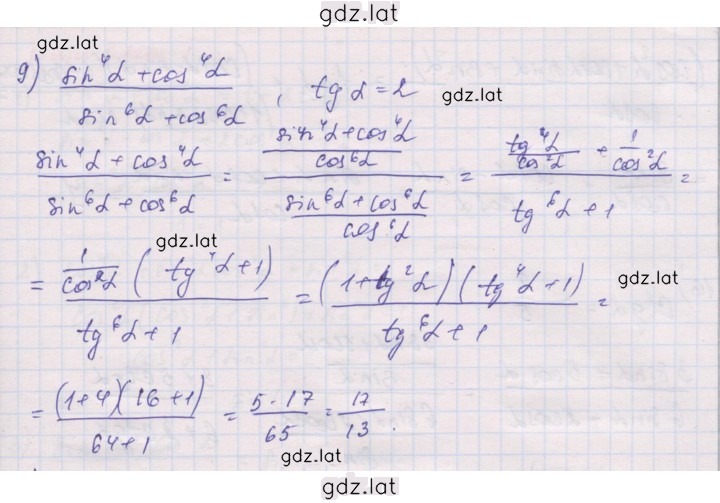 gdz.lat
gdz.lat
9) (sin⁴α + cos⁴α)/(sin⁶α + cos⁶α), tg α = 2
gdz.lat
(sin⁴α + cos⁴α)/(sin⁶α + cos⁶α) = ((sin⁴α + cos⁴α)/cos⁶α)/((sin⁶α + cos⁶α)/cos⁶α) = (tg⁴α/cos²α + 1/cos²α)/(tg⁶α + 1) =
gdz.lat
= (1/cos²α (tg⁴α + 1))/(tg⁶α + 1) = ((1 + tg²α)(tg⁴α + 1))/(tg⁶α + 1) =
gdz.lat
= ((1+4)(16+1))/(64+1) = (5·17)/65 = 17/13.
gdz.lat
gdz.lat